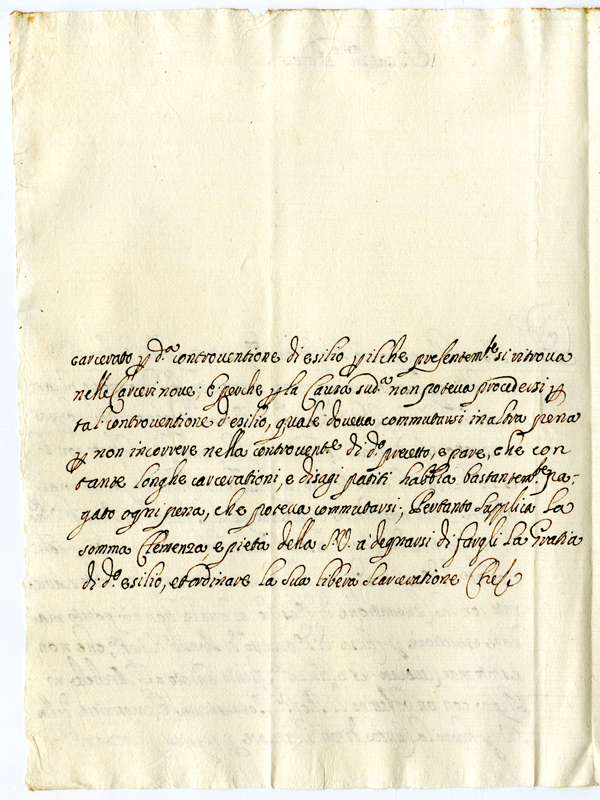 carcerato p d.ª controventione di esilio p ilche presentem.te si ritrova
nelle Carceri nove; E perche p la Causa sud.ª non poteva procedersi p
tal controventione d'esilio, quale doveva commutarsi in altra pena
p non incorrere nella controvent.e di d.º precetto, e pare, che con
tante longhe carcerationi, e disagi patiti habbia bastantem.te pa-
gato ogni pena, che poteva commutarsi; Pertanto Supplica La
somma Clemenza e pietà della S.V. a degnarsi di fargli La Gratia
di d.º esilio, et ordinare la Sua libera Scarceratione Che